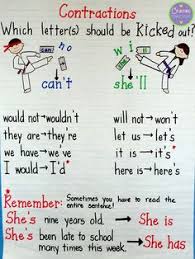 Contractions
Which letter(s) should be Kicked out?
can no
can't
wi
she'll
would not → wouldn't
they are → they're
we have → we've
I would → I'd
will not → won't
let us → let's
it is → it's
here is → here's
Remember: Sometimes you have to read the
entire sentence!
She's nine years old → She is
She's been late to school → She has
many times this week.